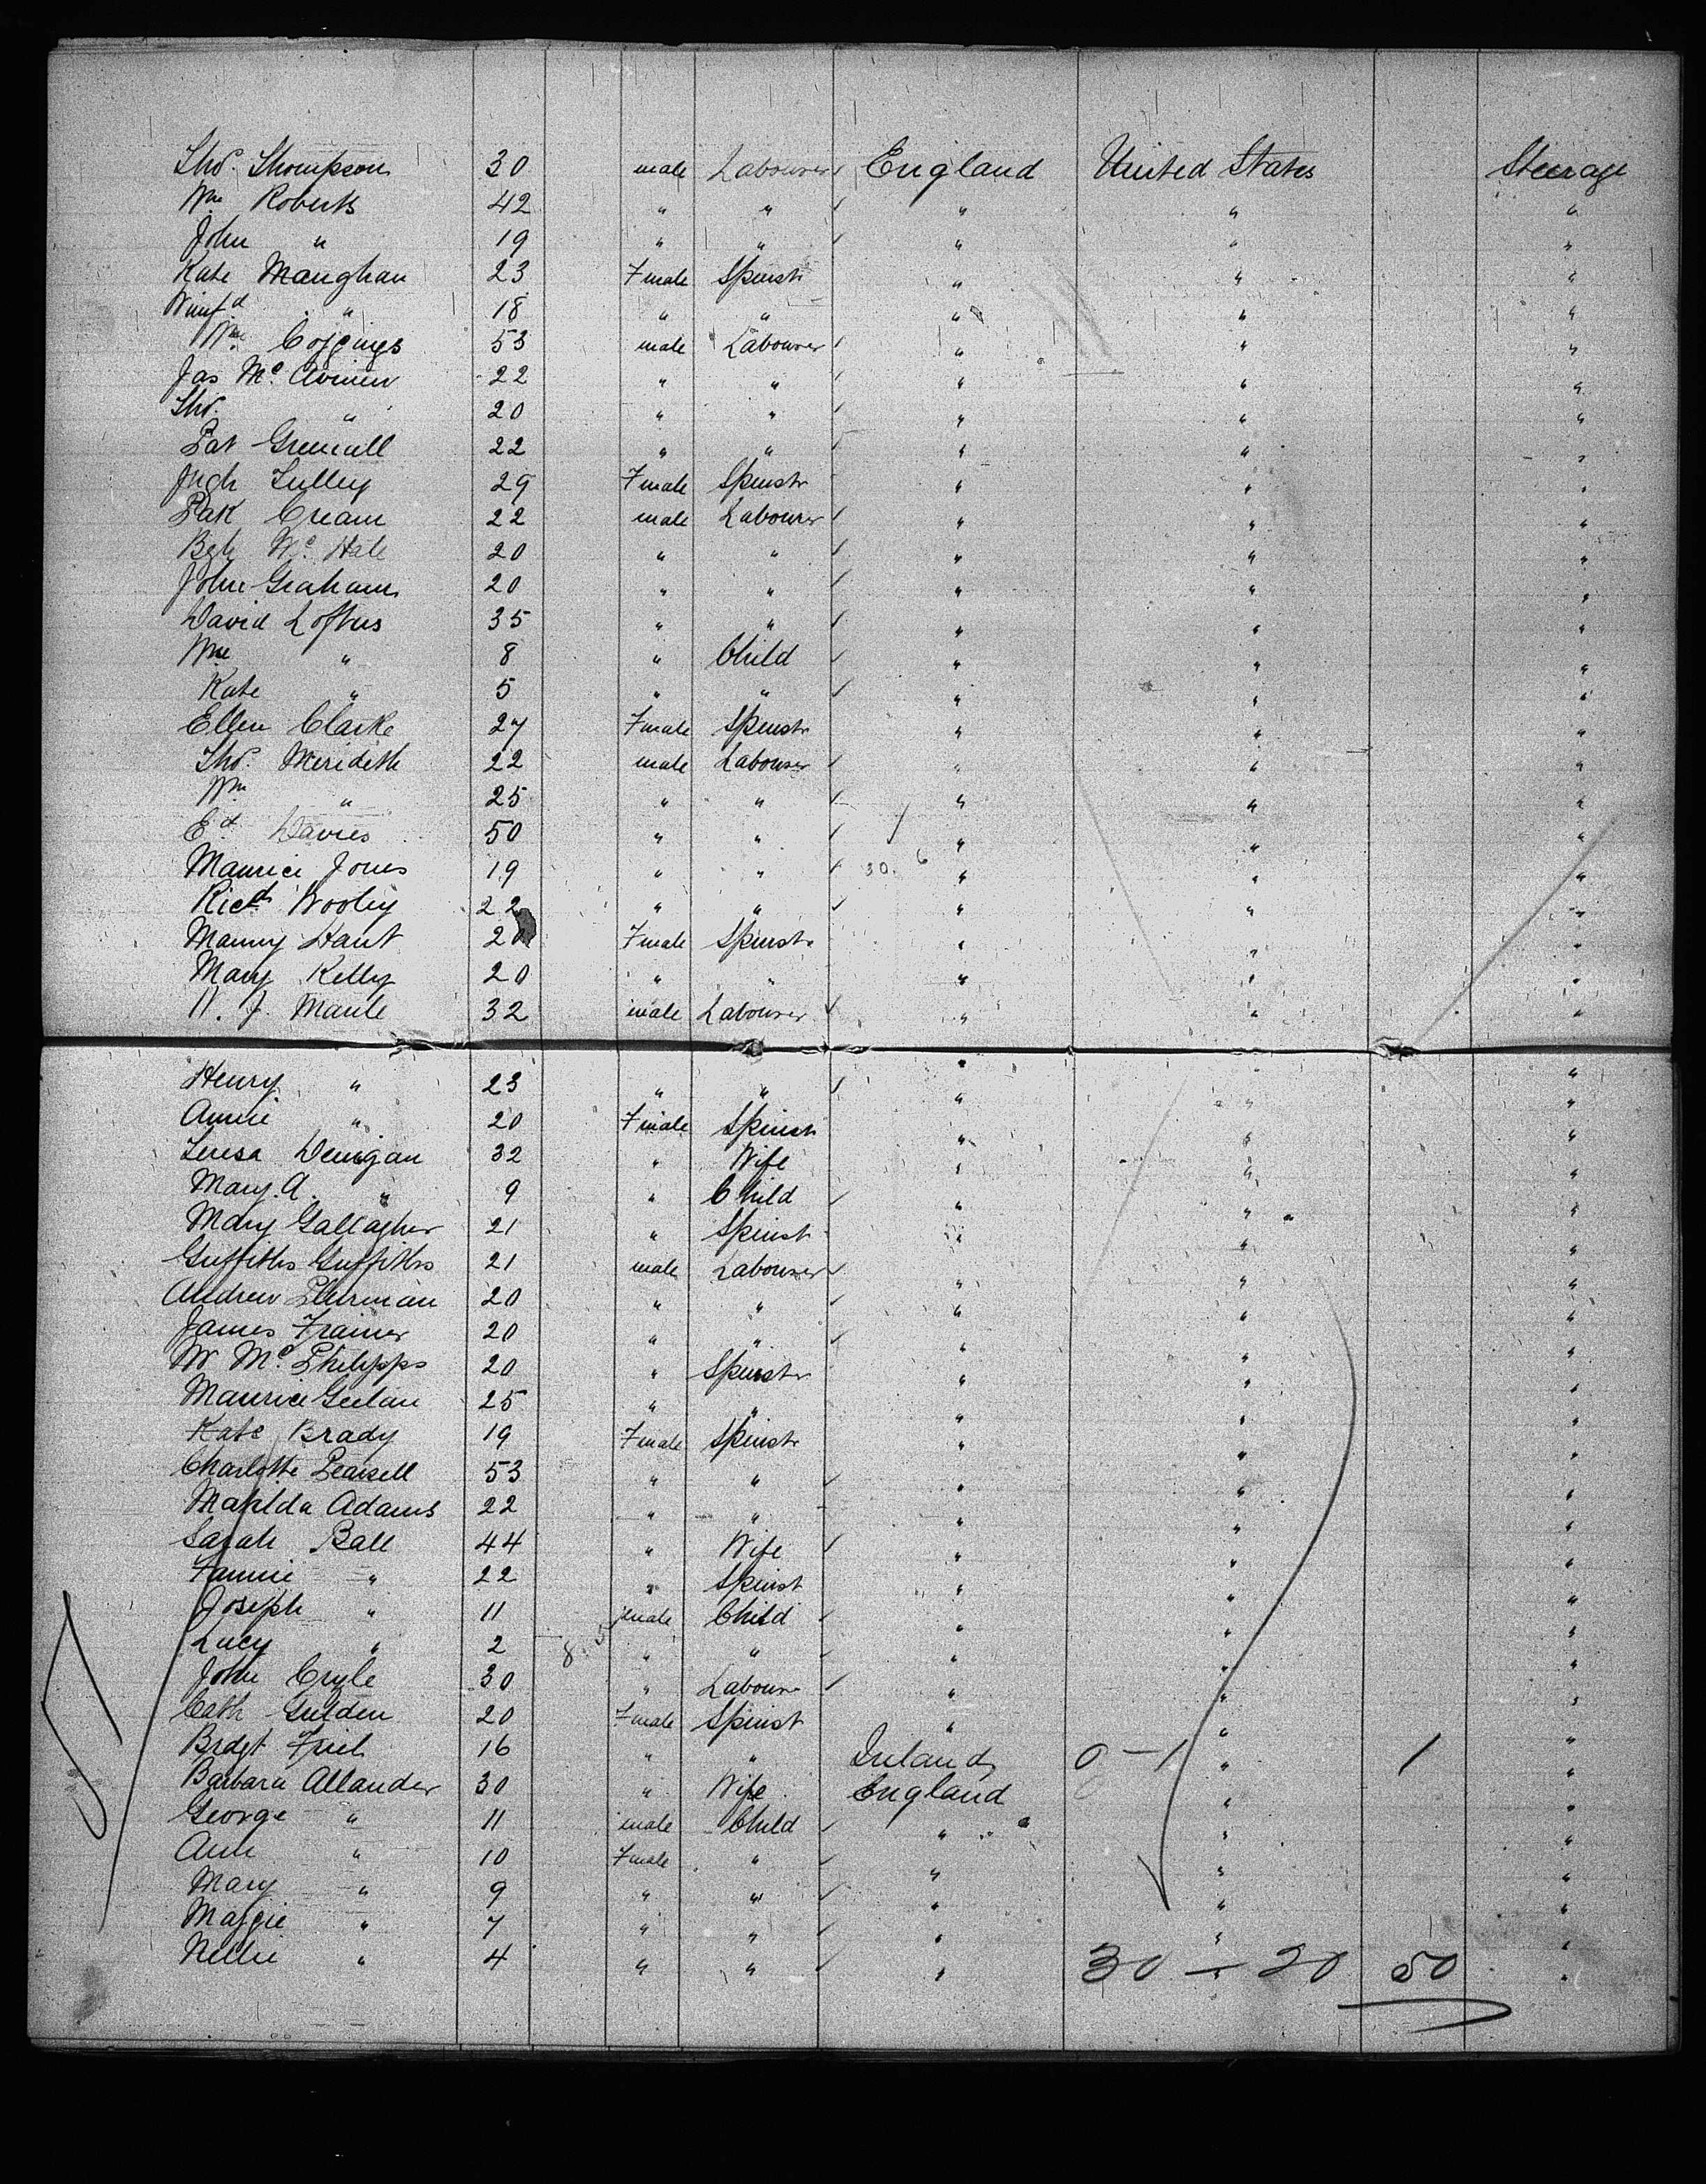 Thos. Thompson 30 male Labourer England United States Steerage
Wm Roberts 42 " " " " "
John " 19 " " " " "
Kate Maughan 23 Fmale Spinstr " " "
Winifd " 18 " " " " "
Wm Coggings 53 male Labourer " " "
Jas Mc 22 " " " " "
Thos. " 20 " " " " "
Pat 22 " " " " "
29 Fmale Spinstr " " "
Pak Cream 22 male Labourer " " "
Mc Hale 20 " " " " "
John Graham 20 " " " " "
David Loftus 35 " " " " "
Wm " 8 " Child " " "
Kate " 5 " " " " "
Ellen Clarke 27 Fmale Spinstr " " "
Thos. Meridith 22 male Labourer " " "
Wm " 25 " " " " "
Ed Davies 50 " " " " "
Maurice Jones 19 " " 30. 6 " " "
Richd 22 " " " " "
20 Fmale Spinstr " " "
Mary Kelly 20 " " " " "
J. Maule 32 male Labourer " " "
Henry " 23 " " " " "
Annie " 20 Fmale Spinstr " " "
Teresa Denigan 32 " Wife " " "
Mary A. " 9 " Child " " "
Mary Gallagher 21 " Spinst " " "
Griffiths Griffiths 21 male Labourer " " "
Andrew 20 " " " " "
James Frainer 20 " " " " "
W Mc Philipps 20 " Spinstr " " "
Maurice 25 " " " " "
Kate Brady 19 Fmale Spinstr " " "
Charlotte 53 " " " " "
Matilda Adams 22 " " " " "
Sarah Ball 44 " Wife " " "
Fannie " 22 " Spinst " " "
Joseph " 11 male Child " " "
Lucy " 2 " " " " "
John 30 " Labour " " "
Cath Gulden 20 Fmale Spinst " " "
Brdgt Friel 16 " " Ireland 0 - 1 " 1 "
Barbara Allander 30 " Wife England " "
George " 11 male Child " " "
Ann " 10 Fmale " " " "
Mary " 9 " " " " "
Maggie " 7 " " " " "
Nellie " 4 " " " 30 - 20 50 "